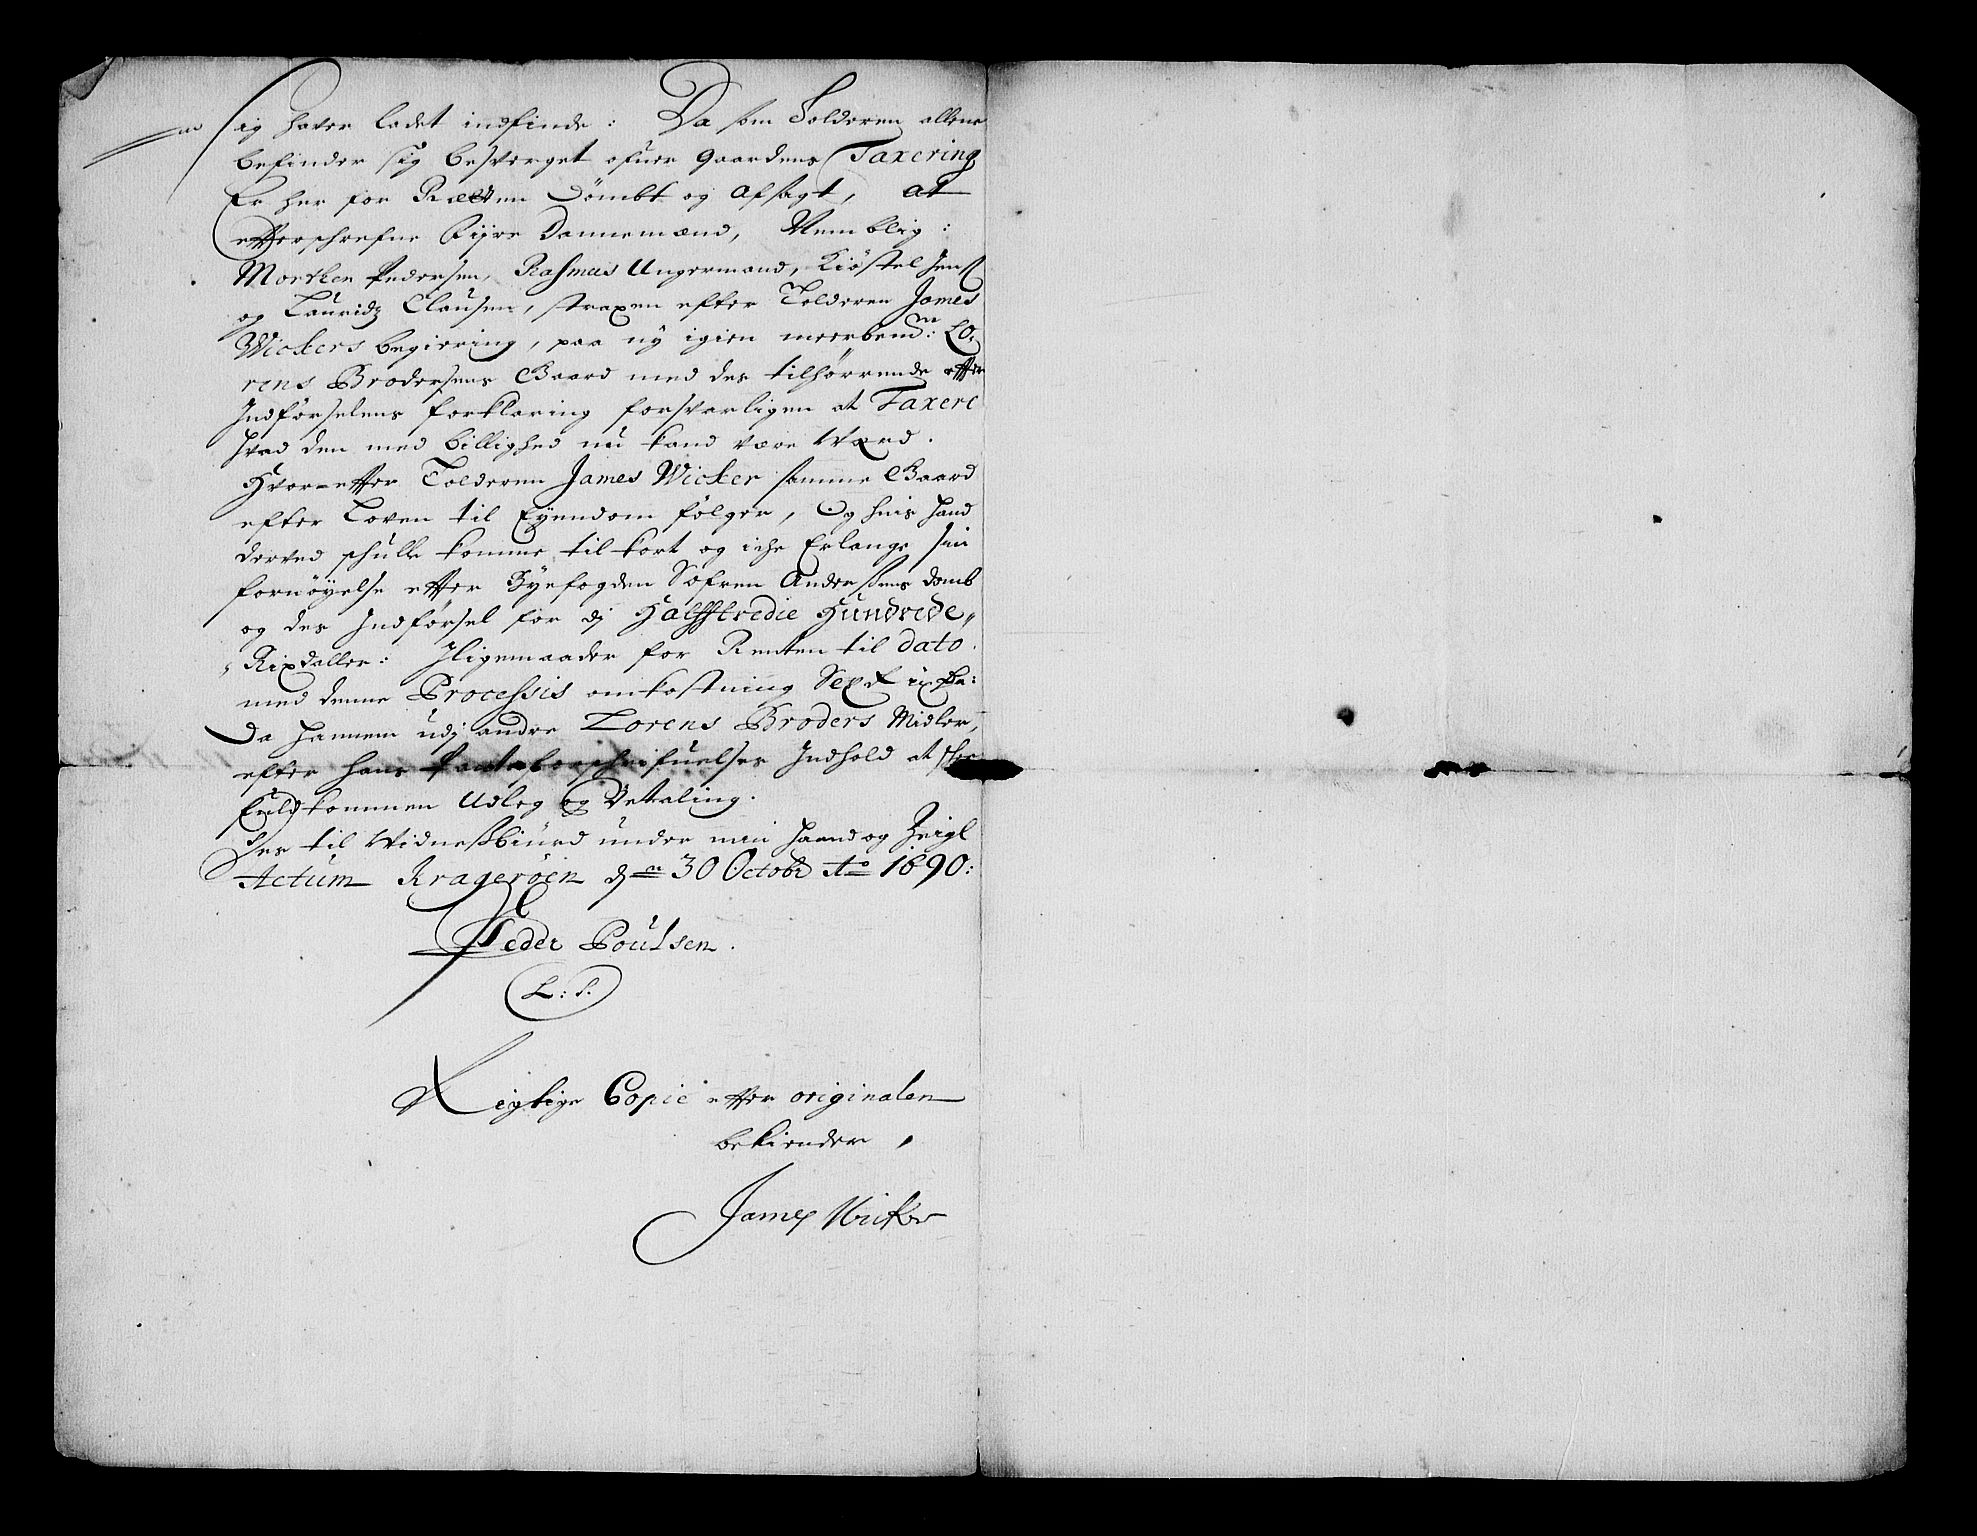 sig hafver ladet indfinde: Da som Tolderen allene
befinder sig besverget ofuer gaardens Taxering
Er her for Rætten Dømbt og afsagt, at
efterschrefne fijre Dannemænd, Nemblig:
Morthen Pedersen, Rasmus Ungermand, Kiøstel Jenß
og Lauridz Clausen, straxen efter Tolderen James
Wickers begiering, paa ny igien meerbemte: Lo-
rens Brodersens Gaard med des tilhørrende efter
Indførselens forklaring forsvarligen at Taxere
hvad den med billighed nu kand være Værd.
Hvor-efter Tolderen James Wicker samme Gaard
efter Loven til Eyendom følger, Og huis hand
derved schulle komme til kort og iche Erlange sin
fornøyelse efter Byefogden Søfren Anderßens domb
og des Indførsel for dj Halfftredie Hundrede
Rixdaller: Iligemaader for Renten til dato
med denne Processis omkostning Sex
Da hannem udj andre Lorens Broders Midler,
efter hans Indhold at skee
fuldkommen Udleg og Betaling.
Des til Vidneßbiurd under min haand og Zeigl
Actum Kragerøen den 30 Octobr Ao 1690:
Peder Poulsen.
L: S.
Rigtige Copie efter originalen
bekiender,
James Wicker